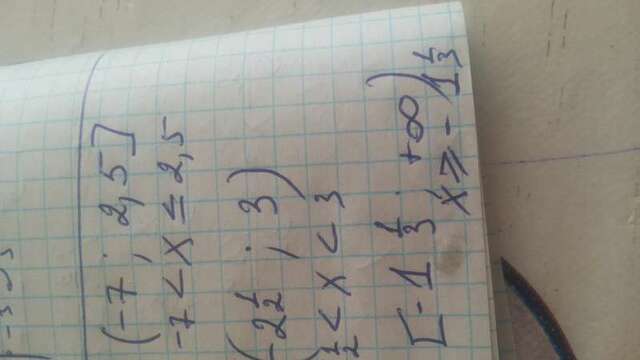 (-7; 2,5]
-7 < x ≤ 2,5
(-2 1/2; 3)
1/2 < x < 3
[-1 1/3; +∞)
x ≥ -1 1/3